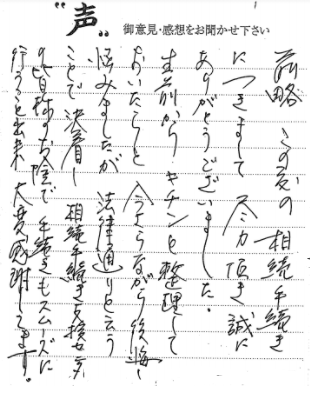 "声" 御意見・感想をお聞かせ下さい
前略 この度の相続手続き
につきまして 尽力頂き誠に
ありがとうございました。
生前からキチンと整理して
おいたらと 今さらながら後悔し
悩みましたが 法律通りと云う
ことで決着し 相続手続き支援センター
の皆様のお陰で手続きもスムーズに
行うこと出来 大変感謝してます。